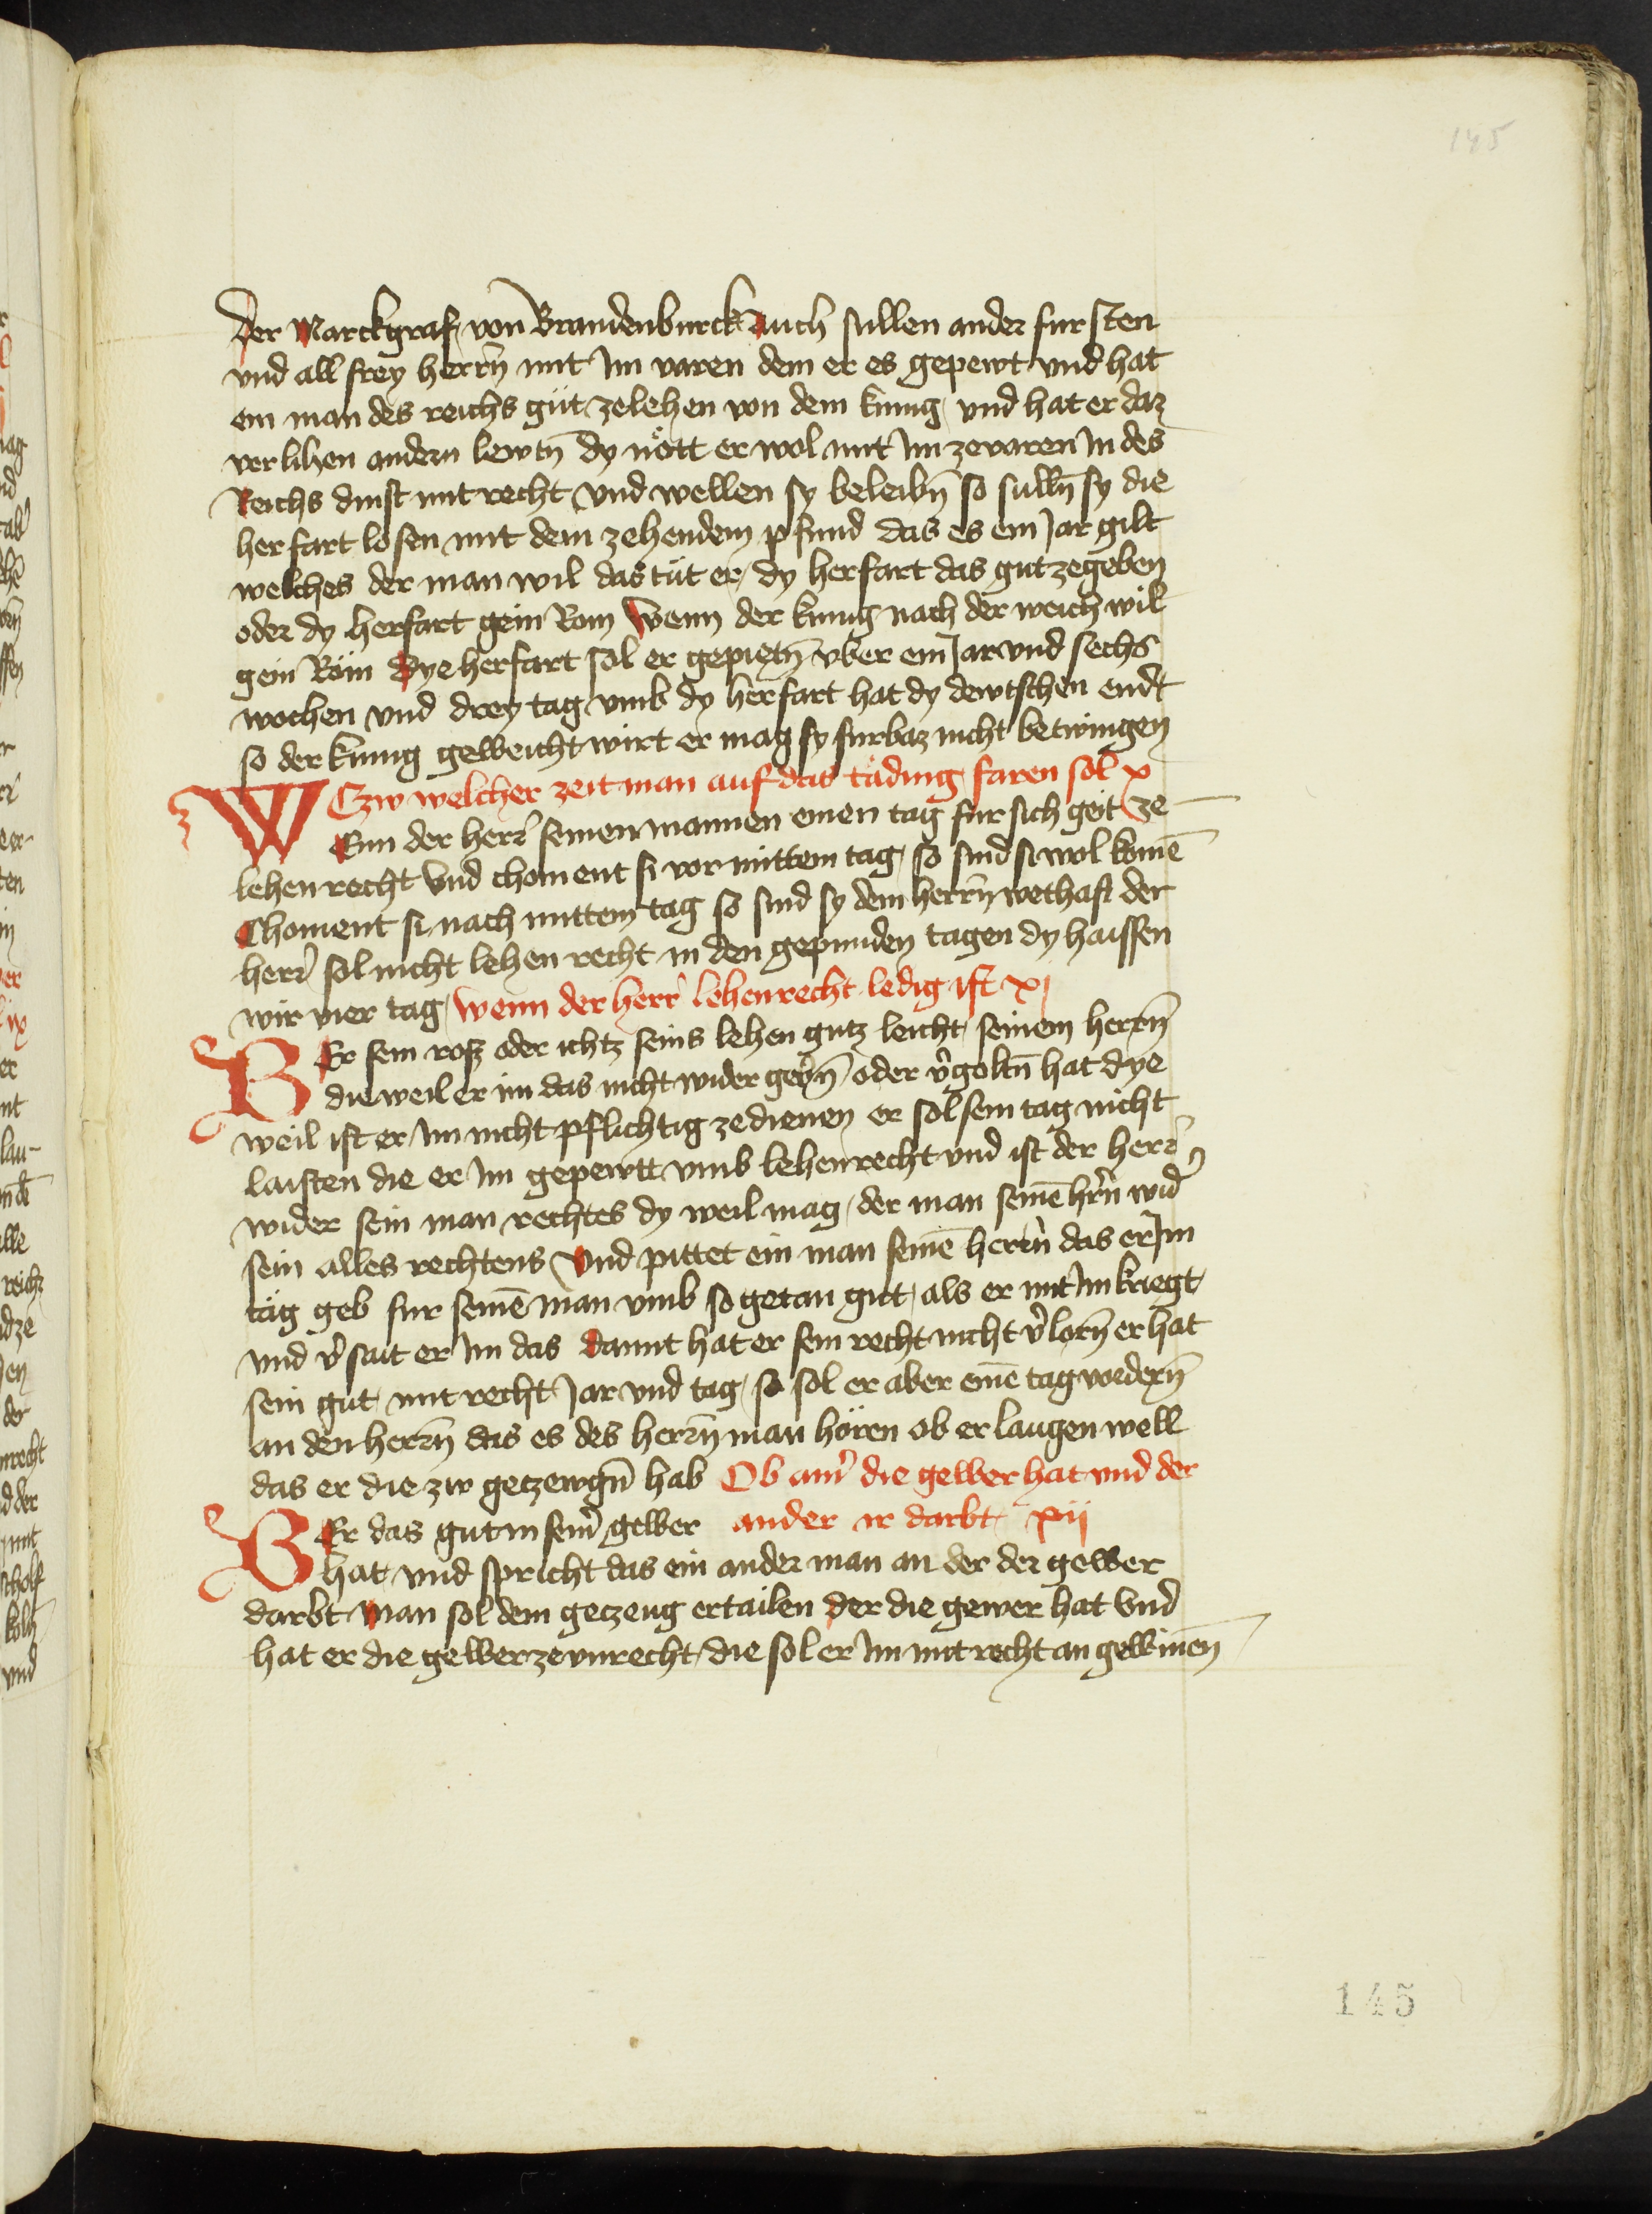 145
der Marckgraf von Brandenburck Auch sullen ander fursten
vnd all frey herrn̄ mit Im varen dem er es gepewt vnd hat
ein man des reichs güt ze lehen von dem kunig vnd hat er daz
verlihen andern lewtn̄ dy nött er wol mit Im ze varen In des
Reichs dinst mit recht vnd wellen sy beleibn̄ so sulln̄ sy die
herfart losen mit dem zehendem pfund das es ein Jar gilt
welches der man wil das tüt er dy herfart das gut ze geben
oder dy herfart gein Rom Wenn der kunig nach der weich wil
gein Röm Dye herfart sol er gepietn̄ vber ein Jar vnd sechs
wochen vnd drey tag vmb dy herfart hat dy dewtschen endt
so der kunig geweicht wirt er mag sy furbaz nicht betwingen
Czw welcher zeit man auf das täding faren sol x
WEnn der herr̄ seinen mannen einen tag fur sich geit ze
lehenrecht Vnd choment si vor mittem tag so sind si wol komē
Choment si nach mittem tag so sind sy dem herrn̄ wethaft der
herr̄ sol nicht lehen recht in den gepunden tagen dy haissen
wir vier tag Wenn der herr̄ lehenrecht ledig ist xj
WEr sein rosz oder ichtz seins lehen gutz leicht seinem herrn̄
die weil er im das nicht wider gebn̄ oder v̄goltn̄ hat dye
weil ist er Im nicht pflichtig ze dienen er sol sein tag nicht
laisten die er Im gepewtt vmb lehenrecht vnd ist der herr̄
wider sein man rechtes dy weil mag der man seinē hrn̄ wid̄
sein alles rechtens Vnd pittet ein man seinē herrn̄ das er Im
täg geb fur seinē man vmb so getan gut als er mit Im kriegt
vnd v̄sait er Im das Damit hat er sein recht nicht v̄lorn̄ er hat
sein gut mit recht Jar vnd tag so sol er aber einē tag vordern̄
an den herrn̄ das es des herrn̄ man hören ob er laugen well
das er die zw getzewgn̄ hab Ob ainr̄ die gewer hat vnd der
WEr das gut in seinr̄ gewer ander ir darbt xij
hat vnd spricht das ein ander man an der der gewer
darbt Man sol dem getzeug ertailen der die gewer hat Vnd
hat er die gewer ze vnrecht die sol er Im mit recht an gewinen̄
145